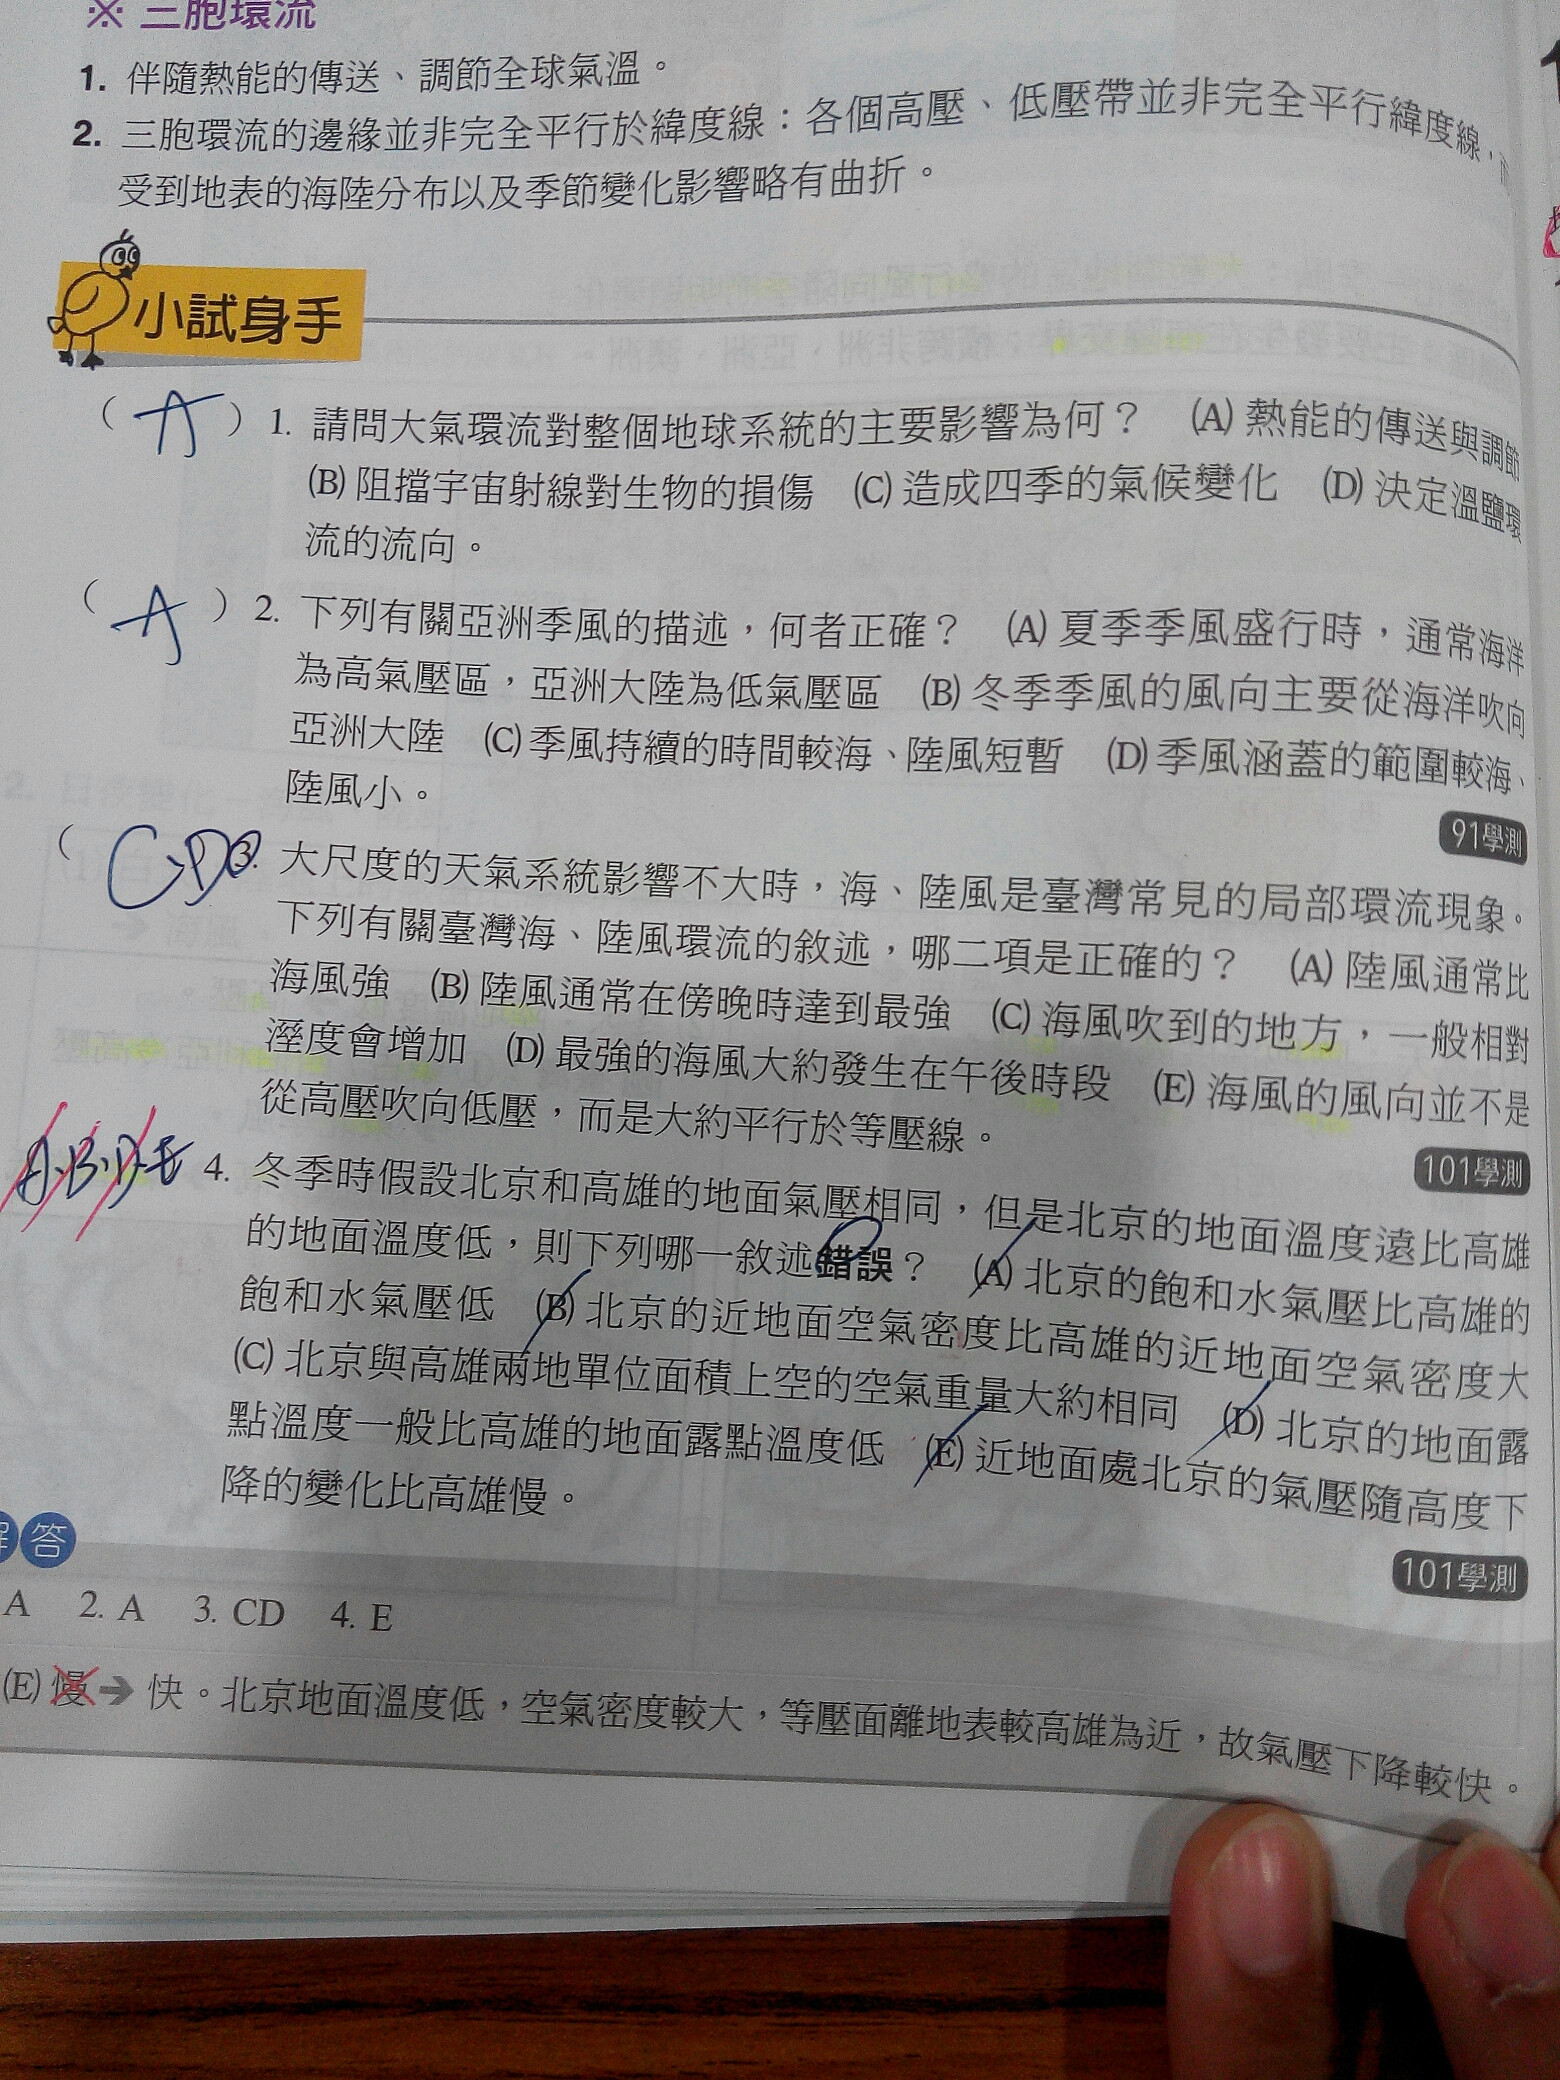 ※ 三胞環流
1. 伴隨熱能的傳送、調節全球氣溫。
2. 三胞環流的邊緣並非完全平行於緯度線：各個高壓、低壓帶並非完全平行緯度線，而
受到地表的海陸分布以及季節變化影響略有曲折。
小試身手
（ A ）1. 請問大氣環流對整個地球系統的主要影響為何？ (A) 熱能的傳送與調節
(B) 阻擋宇宙射線對生物的損傷 (C) 造成四季的氣候變化 (D) 決定溫鹽環
流的流向。
（ A ）2. 下列有關亞洲季風的描述，何者正確？ (A) 夏季季風盛行時，通常海洋
為高氣壓區，亞洲大陸為低氣壓區 (B) 冬季季風的風向主要從海洋吹向
亞洲大陸 (C) 季風持續的時間較海、陸風短暫 (D) 季風涵蓋的範圍較海、
陸風小。
91學測
（ C、D 3. 大尺度的天氣系統影響不大時，海、陸風是臺灣常見的局部環流現象。
下列有關臺灣海、陸風環流的敘述，哪二項是正確的？ (A) 陸風通常比
海風強 (B) 陸風通常在傍晚時達到最強 (C) 海風吹到的地方，一般相對
溼度會增加 (D) 最強的海風大約發生在午後時段 (E) 海風的風向並不是
從高壓吹向低壓，而是大約平行於等壓線。
101學測
A.B.D.E 4. 冬季時假設北京和高雄的地面氣壓相同，但是北京的地面溫度遠比高雄
的地面溫度低，則下列哪一敘述錯誤？ (A) 北京的飽和水氣壓比高雄的
飽和水氣壓低 (B) 北京的近地面空氣密度比高雄的近地面空氣密度大
(C) 北京與高雄兩地單位面積上空的空氣重量大約相同 (D) 北京的地面露
點溫度一般比高雄的地面露點溫度低 (E) 近地面處北京的氣壓隨高度下
降的變化比高雄慢。
101學測
解答
A 2. A 3. CD 4. E
(E) 慢➔快。北京地面溫度低，空氣密度較大，等壓面離地表較高雄為近，故氣壓下降較快。